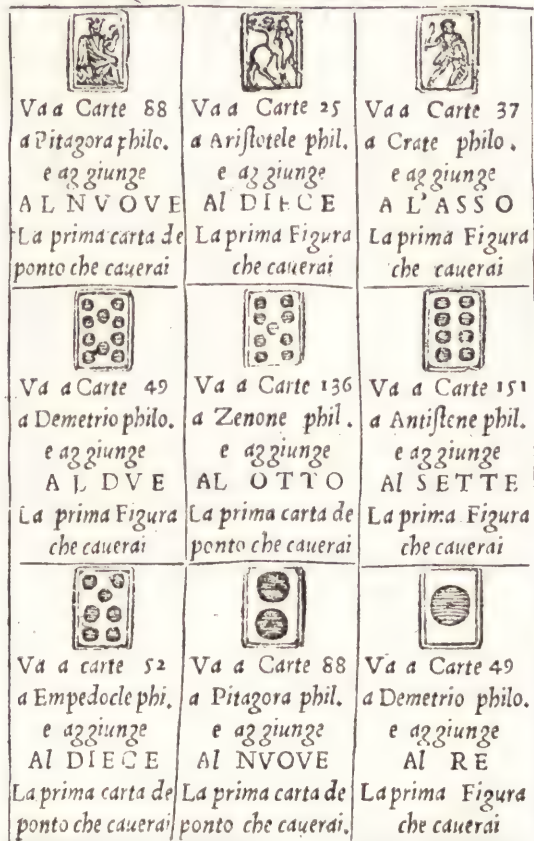 Va a Carte 88
a Pitagora philo.
e ag giunge
AL NVOVE
La prima carta de
ponto che cauerai
Va a Carte 25
a Ariſtotele phil.
e ag giunge
Al DIECE
La prima Figura
che cauerai
Va a Carte 37
a Crate philo.
e ag giunge
A L'ASSO
La prima Figura
che cauerai
Va a Carte 49
a Demetrio philo.
e ag giunge
AL DVE
La prima Figura
che cauerai
Va a Carte 136
a Zenone phil.
e aggiunge
AL OTTO
La prima carta de
ponto che cauerai
Va a Carte 151
a Antiſtene phil.
e aggiunge
Al SETTE
La prima Figura
che cauerai
Va a carte 52
a Empedocle phi.
e aggiunge
Al DIECE
La prima carta de
ponto che cauerai
Va a Carte 88
a Pitagora phil.
e aggiunge
Al NVOVE
La prima carta de
ponto che cauerai.
Va a Carte 49
a Demetrio philo.
e aggiunge
Al RE
La prima Figura
che cauerai